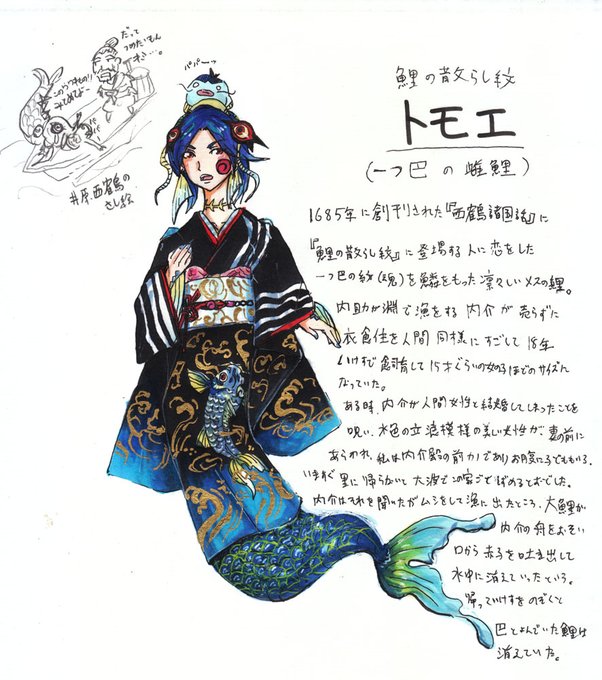 だって
つめたいもん
パパーッ
井原西鶴の
さし絵
鯉の散らし紋
トモエ
(一つ巴の雌鯉)
1685年に創刊された『西鶴諸国話』に
『鯉の散らし紋』に登場する人に恋をした
一つ巴の紋(魂)を鱗をもった凛々しいメスの鯉。
内助が渕で漁をする内介が売らずに
衣食住を人間同様にすごして18年
いけすで飼育して15才ぐらいの女の子ほどのサイズに
なっていた。
ある時、内介が人間女性と結婚してしまったことを
呪い、水色の立浪模様の美しい女性が、妻の前に
あらわれ、私は内介殿の前カノでありお腹に子どももいる。
いますぐ里に帰らないと大波でこの家ごと沈めるとおどした。
内介はそれを聞いたがムシをして漁に出たところ、大鯉が
内介の舟をおそい
口から赤子を吐き出して
水中に消えていったという。
帰っていけすをのぞくと
巴とよんでいた鯉は
消えていた。